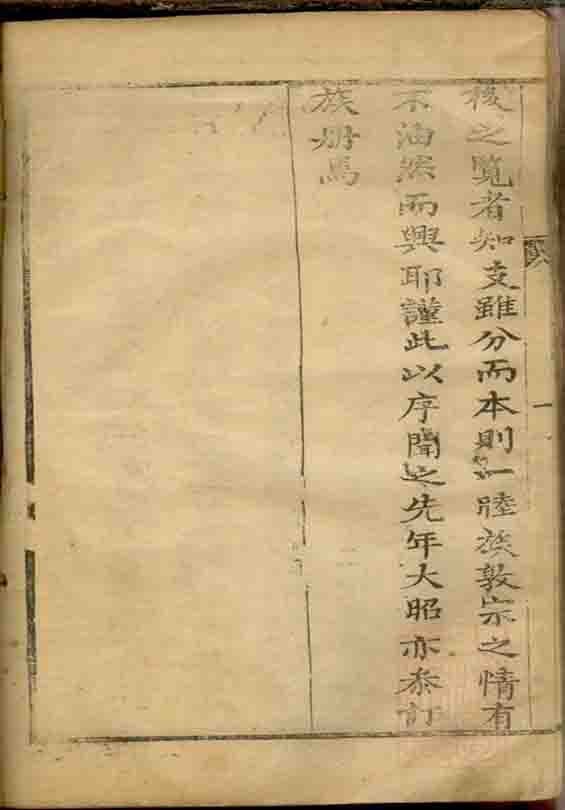 後之覽者知支雖分而本則一睦族敦宗之情有
不油然而興耶謹此以序聞之先年大昭亦叅訂
族册焉
一